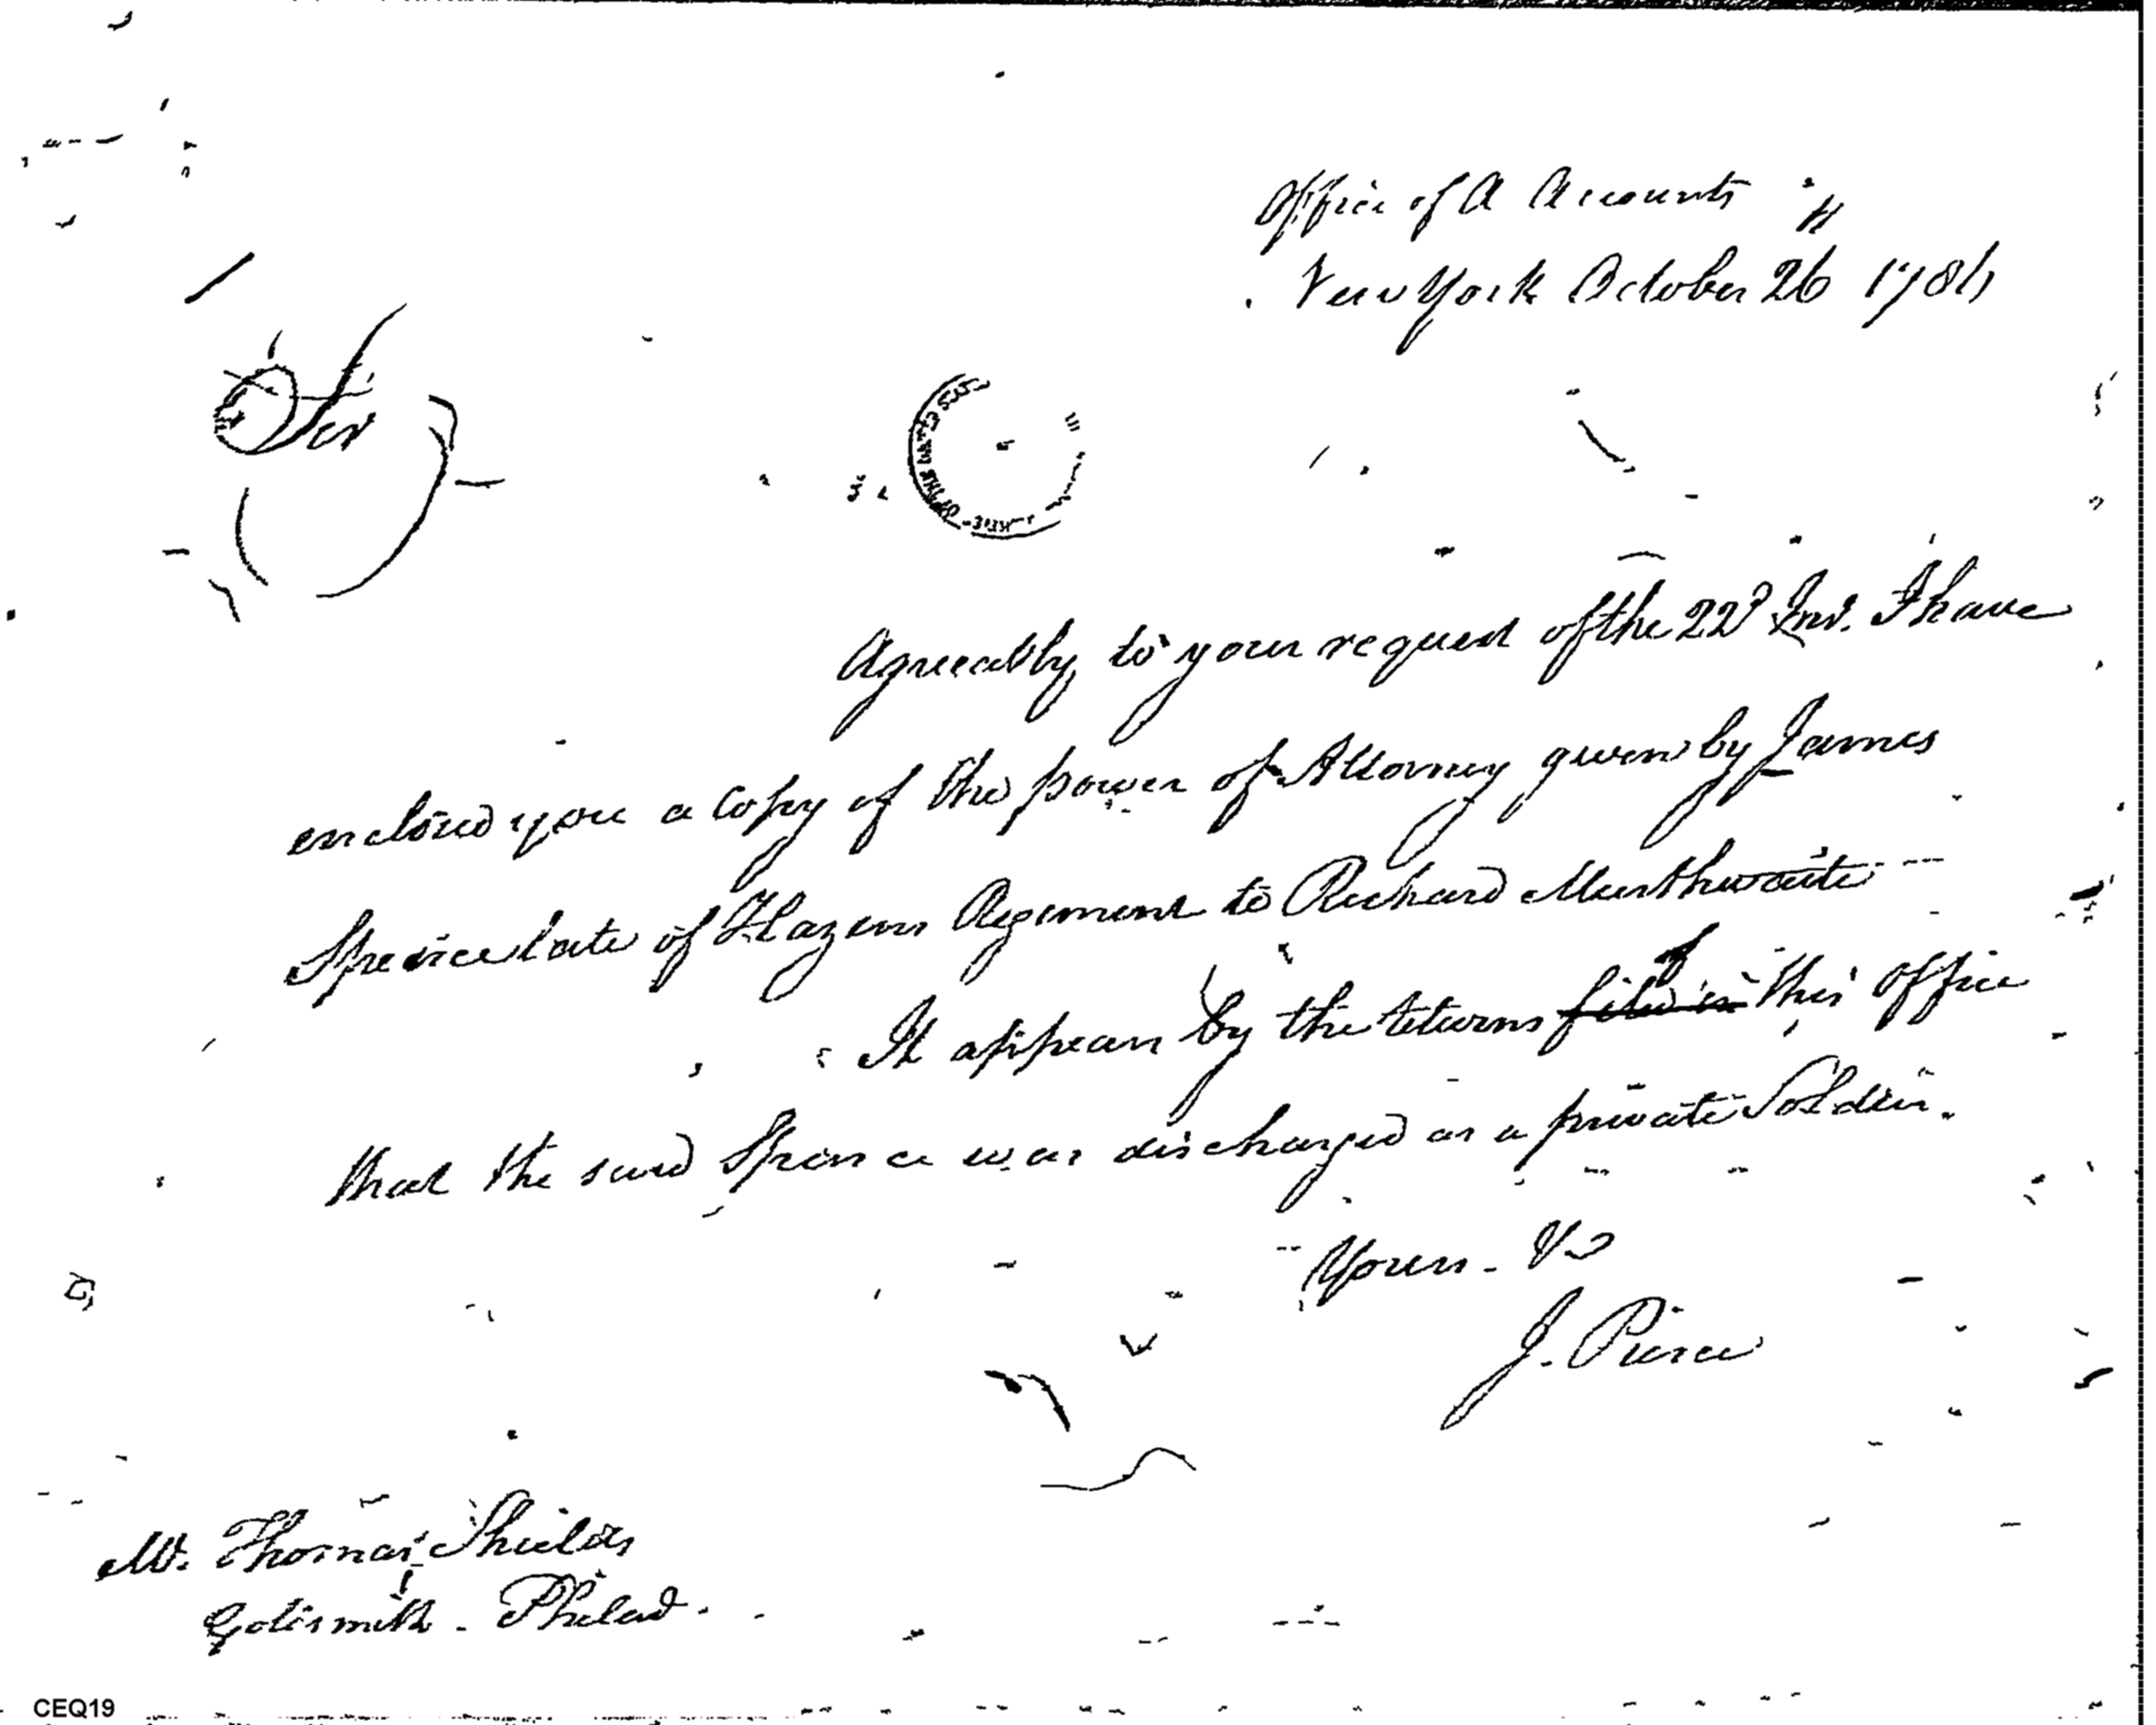 Office of A Accounts
New York October 26 1784
Sir
Agreeably to your request of the 22d Inst. I have
enclosed you a Copy of the power of Attorney given by James
Spence late of Hazens Regiment to Richard Murthwaite
It appears by the returns filed in this office
that the said Spence was discharged as a private Soldier.
Yours - &c
J. Pierce
Mr. Thomas Shields
Goldsmith - Philad.
CEQ19